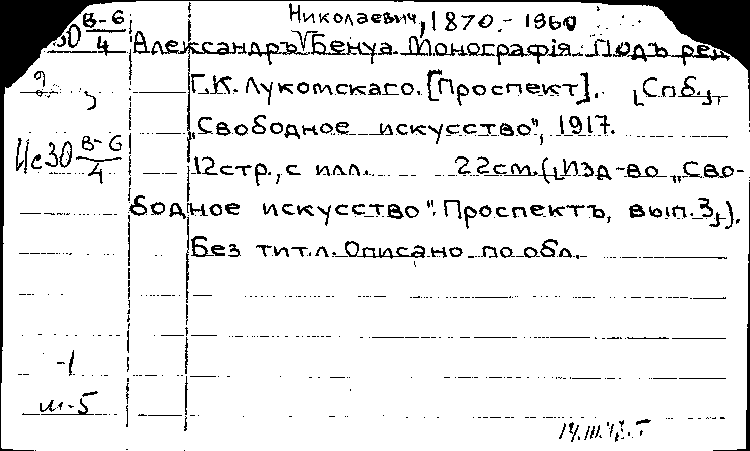 Николаевич, 1870.-1960
30 В-6/4 Александръ Бенуа. Монографія. Подъ ред
2 Г.К. Лукомскаго. [Проспект]. [Спб.],
„Свободное искусство", 1917.
Ис30 В-6/4 12стр., с илл. 22см. ([Изд-во „Сво-
бодное искусство". Проспектъ, вып. 3]).
Без тит.л. Описано по обл.
-1
м-5